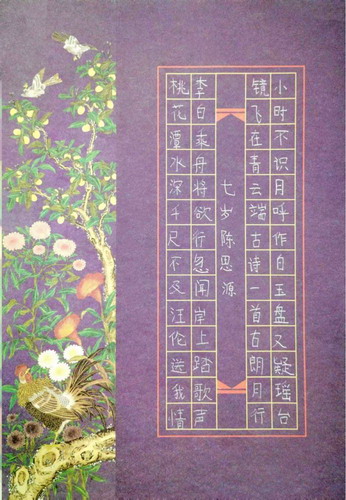 小时不识月呼作白玉盘又疑瑶台
镜飞在青云端古诗一首古朗月行
七岁陈思源
李白乘舟将欲行忽闻岸上踏歌声
桃花潭水深千尺不及汪伦送我情